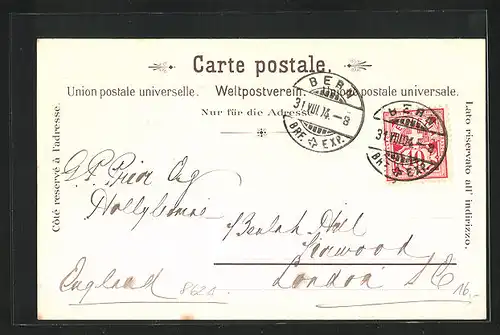 Carte postale.
Union postale universelle. Weltpostverein. Unione postale universale.
Nur für die Adresse.
BERN
31.VIII.04.-8
BRF. EXP.
BERN
31.VIII.04.-8
BRF. EXP.
10
Côté reservé à l'adresse.
Lato riservato all' indirizzo.
G. P. Prior Esq
Beulah Hill
Norwood
London S E
England
862a
16,-